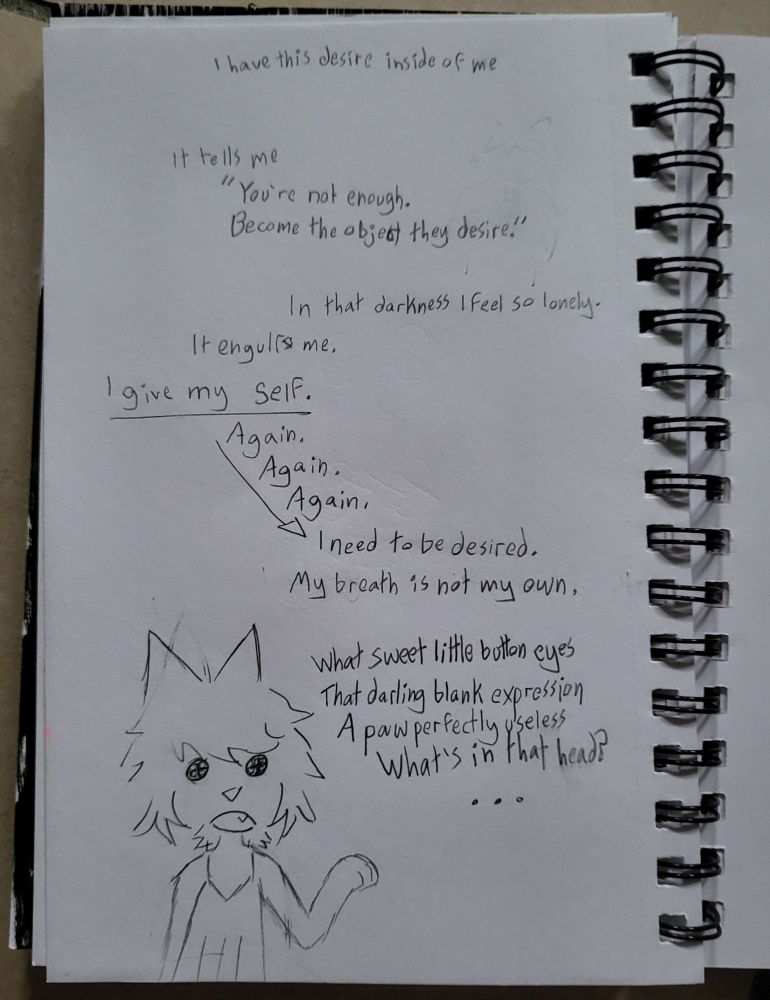 I have this desire inside of me
It tells me
"You're not enough.
Become the object they desire."
In that darkness I feel so lonely.
It engulfs me.
I give my self.
Again.
Again.
Again.
I need to be desired.
My breath is not my own.
What sweet little button eyes
That darling blank expression
A paw perfectly useless
What's in that head?
...